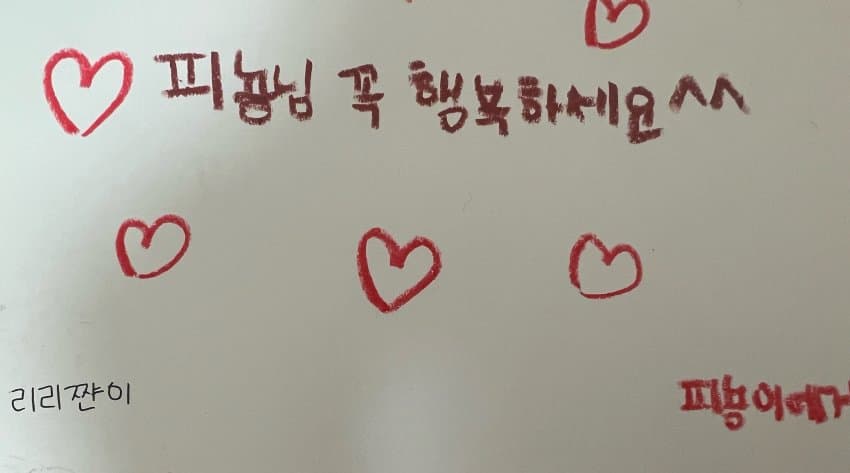 피뇽님 꼭 행복하세요^^
리리쨘이
피뇽이에게